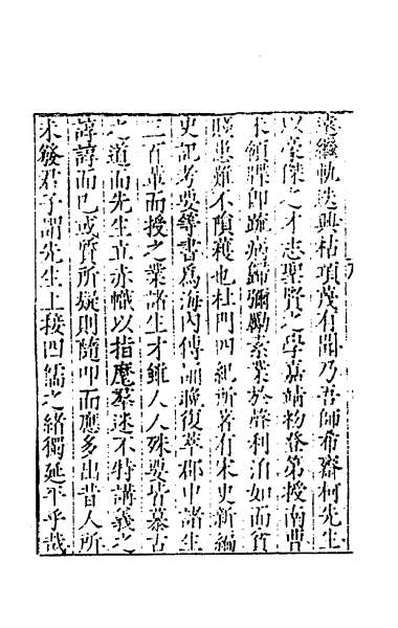 遠繼軌迭興枯項茂有聞乃吾師希齋柯先生
以豪傑之才志聖賢之學嘉靖初登第授南曹
未領牒即疏病歸彌勵素業於聲利泊如而貧
賤患難不隕穫也杜門四紀所著有宋史新編
史記考要等書為海內傳誦晚復萃郡中諸生
三百輩而授之業諸生才雖人人殊要皆慕古
之道而先生立赤幟以指麾羣迷不特講義之
諄諄而已或質所疑則隨叩而應多出昔人所
未發君子謂先生上接四儒之緒獨延平乎哉